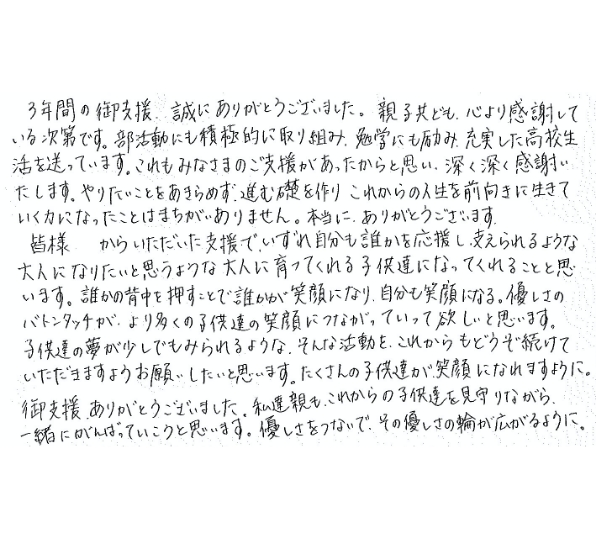 3年間の御支援、誠にありがとうございました。親子共ども、心より感謝して
いる次第です。部活動にも積極的に取り組み、勉学にも励み、充実した高校生
活を送っています。これもみなさまのご支援があったからと思い、深く深く感謝い
たします。やりたいことをあきらめず、進む礎を作り これからの人生を前向きに生きて
いく力になったことはまちがいありません。本当に、ありがとうございます。
皆様 からいただいた支援で、いずれ自分も誰かを応援し、支えられるような
大人になりたいと思うような大人に育ってくれる子供達になってくれることと思
います。誰かの背中を押すことで誰かが笑顔になり、自分も笑顔になる。優しさの
バトンタッチが、より多くの子供達の笑顔につながっていって欲しいと思います。
子供達の夢が少しでもみられるような、そんな活動を、これからもどうぞ続けて
いただきますようお願いしたいと思います。たくさんの子供達が笑顔になれますように。
御支援、ありがとうございました。私達親も、これからの子供達を見守りながら、
一緒にがんばっていこうと思います。優しさをつないで、その優しさの輪が広がるように。